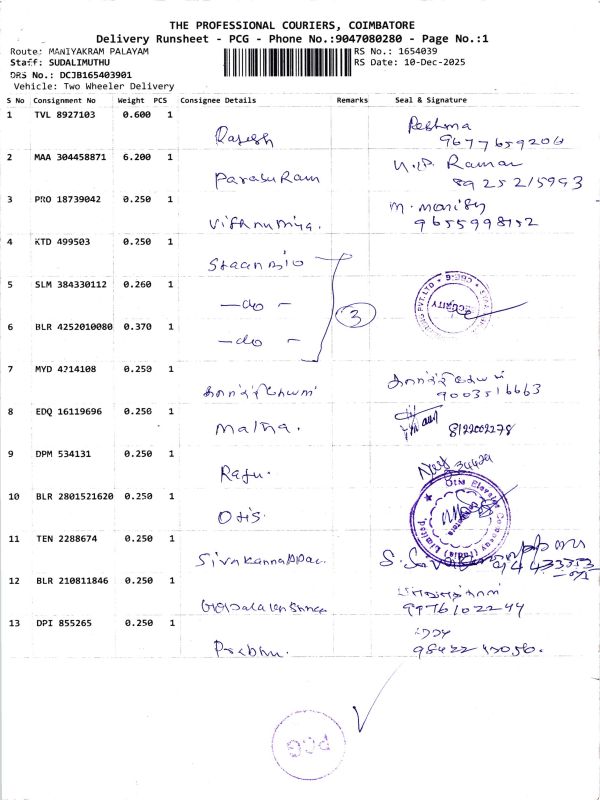 THE PROFESSIONAL COURIERS, COIMBATORE
Delivery Runsheet - PCG - Phone No.:9047080280 - Page No.:1
Route: MANIYAKRAM PALAYAM
RS No.: 1654039
Staff: SUDALIMUTHU
RS Date: 10-Dec-2025
DRS No.: DCJB165403901
Vehicle: Two Wheeler Delivery
S No Consignment No Weight PCS Consignee Details Remarks Seal & Signature
1 TVL 8927103 0.600 1 Rajesh Reshma
9677659206
2 MAA 304458871 6.200 1 Parasu Ram Raman
8925215993
3 PRO 18739042 0.250 1 Vishnu Priya.
9655998152
4 KTD 499503 0.250 1
5 SLM 384330112 0.260 1 -do-
3
6 BLR 4252010080 0.370 1 -do-
7 MYD 4214108 0.250 1
9003516663
8 EDQ 16119696 0.250 1 Malha.
8122002278
9 DPM 534131 0.250 1 Raju.
10 BLR 2801521620 0.250 1 Otis.
Otis Elevator Company (India) Limited
11 TEN 2288674 0.250 1 Sivakannappan
12 BLR 210811846 0.250 1
9976102244
13 DPI 855265 0.250 1 Prabhu.
PCG